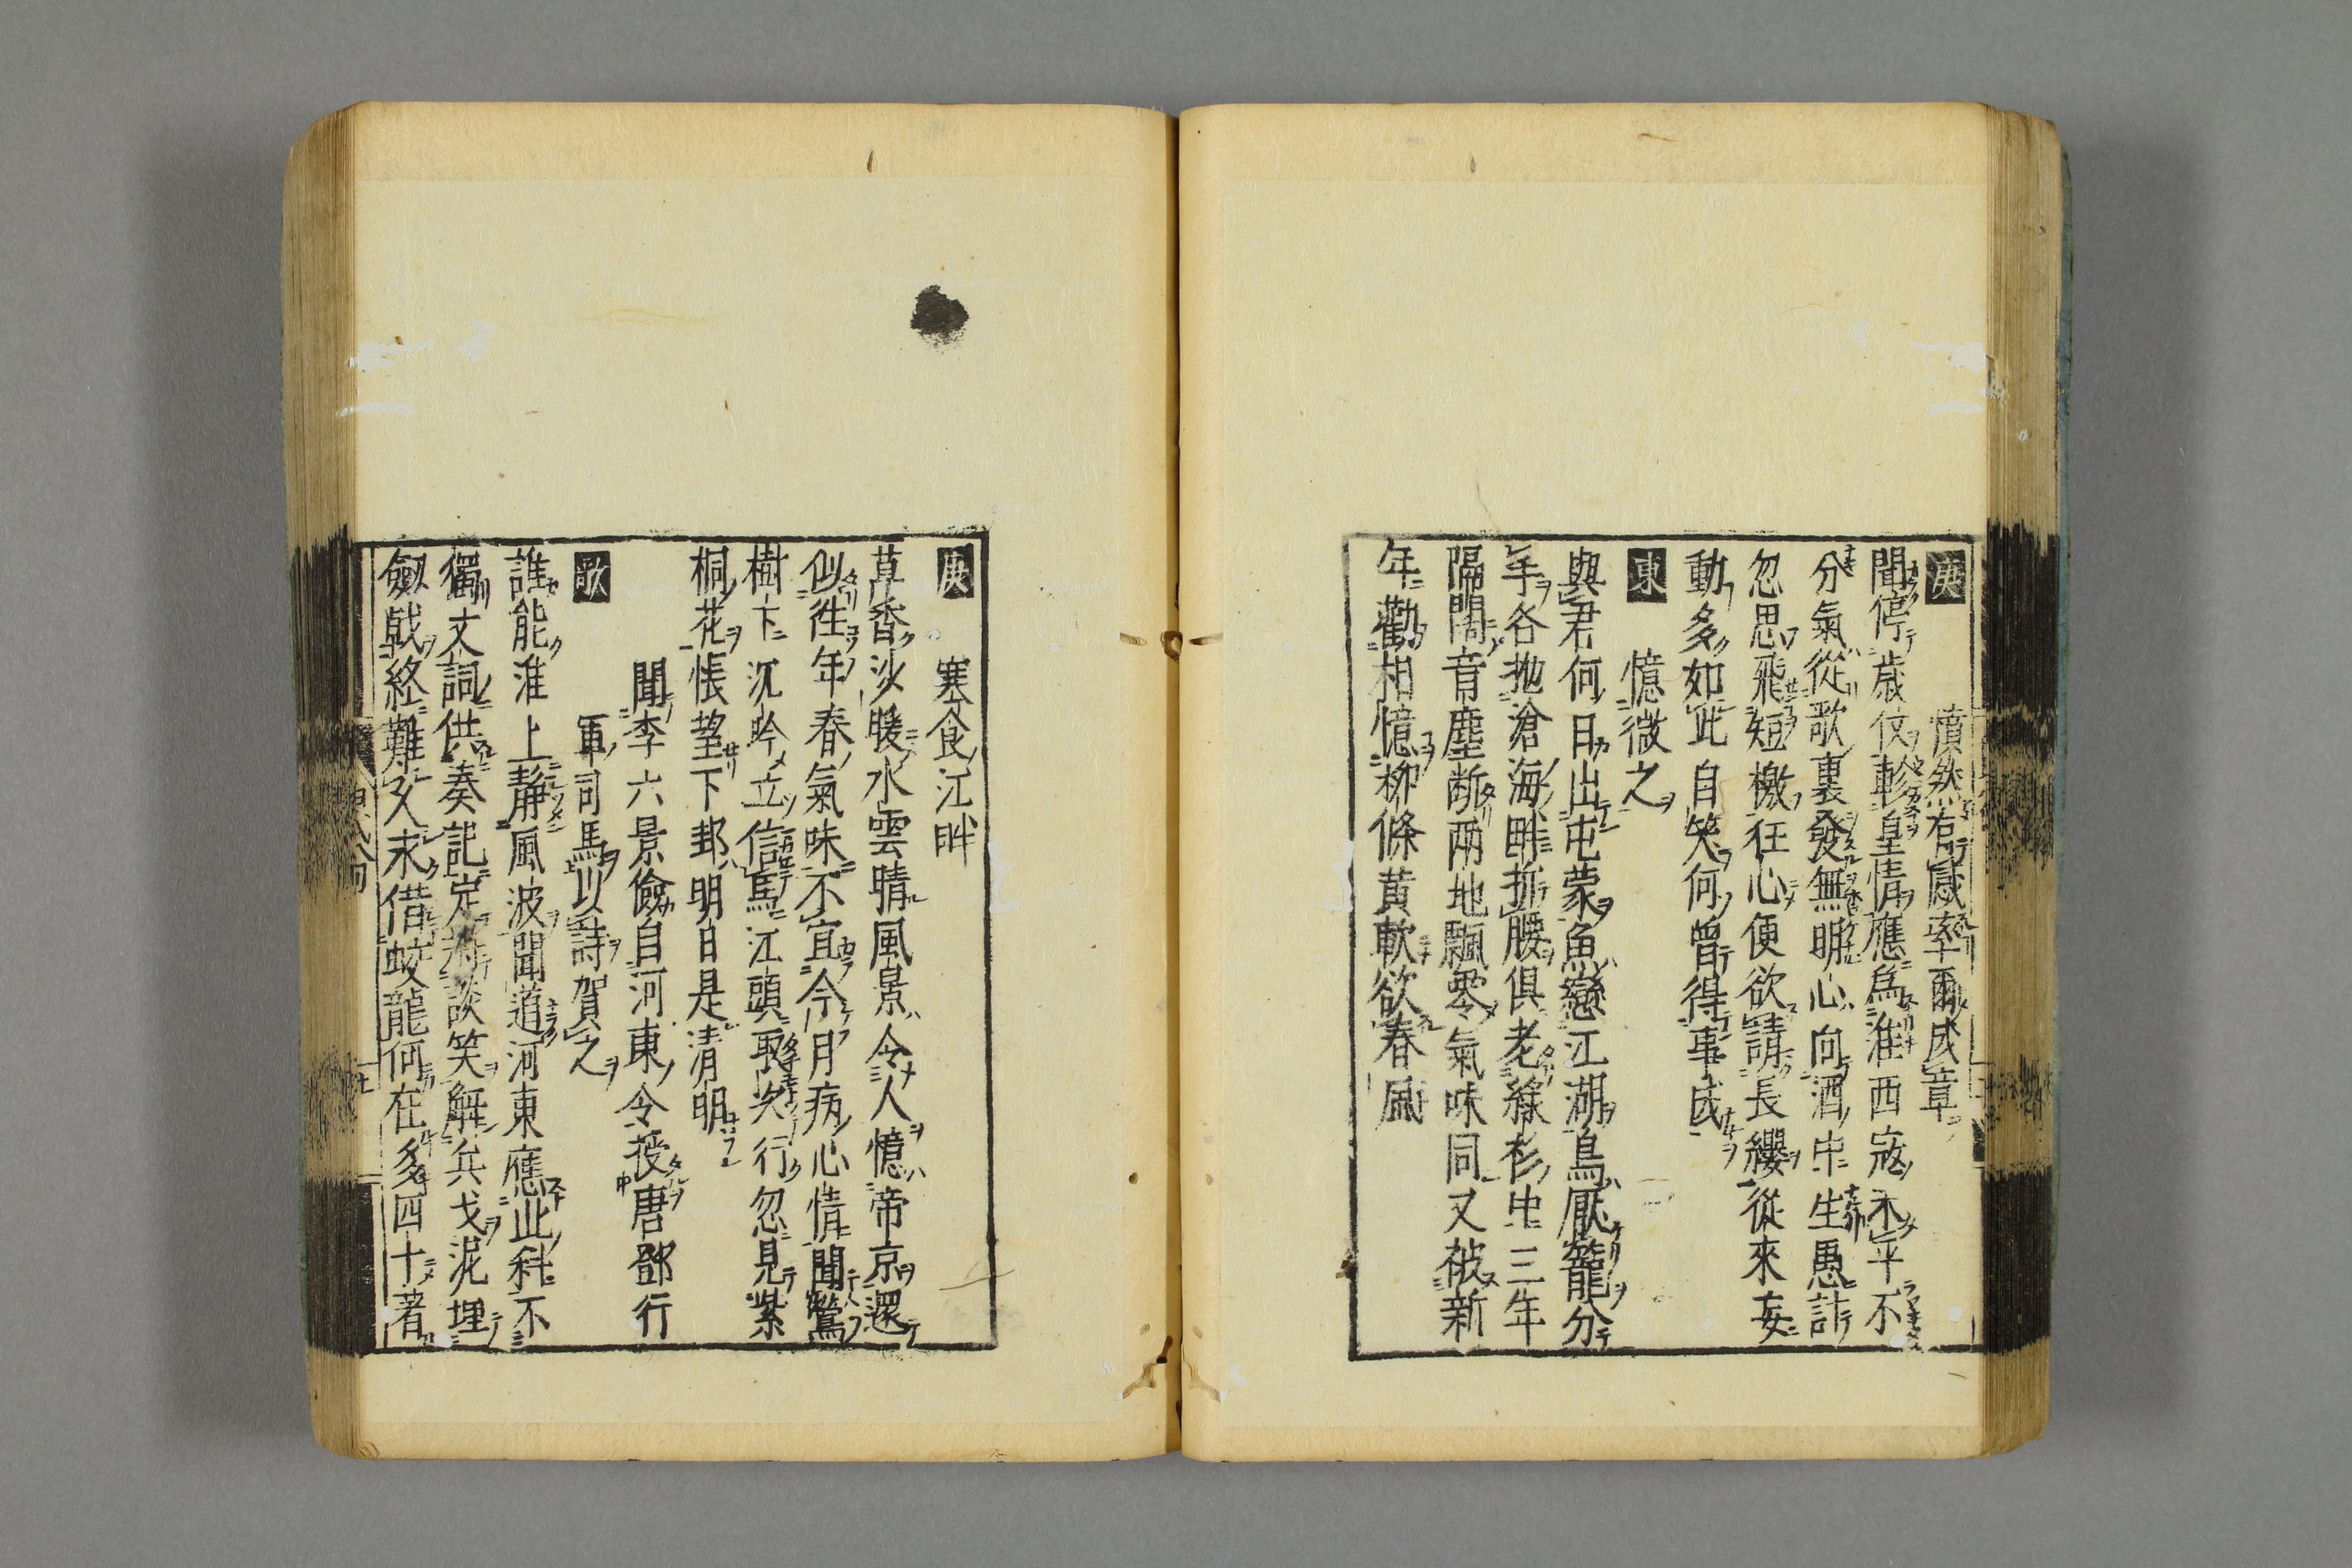 庚
憤然有感率爾成章
聞停歲仗軫皇情應為淮西寇未平不
分氣從歌裏發無明心向酒中生愚計
忽思飛短檄狂心便欲請長纓從來妄
動多如此自笑何曾得事成
東
憶微之
與君何日出屯蒙魚戀江湖鳥厭籠分
手各抛滄海畔折腰俱老綠衫中三年
隔闊音塵断兩地飄零氣味同又被新
年勸相憶柳條黃軟欲春風
庚
寒食江畔
草香沙暖水雲晴風景令人憶帝京還
似徃年春氣味不宜今月病心情聞鶯
樹下沉吟立信馬江頭取次行忽見紫
桐花悵望下邽明日是清明
聞李六景儉自河東令授唐鄧行
軍司馬以詩賀之
歌
誰能淮上靜風波聞道河東應此科不
獨文詞供奏記定將談笑解兵戈泥埋
劔戟終難久水借蛟龍何在多四十著